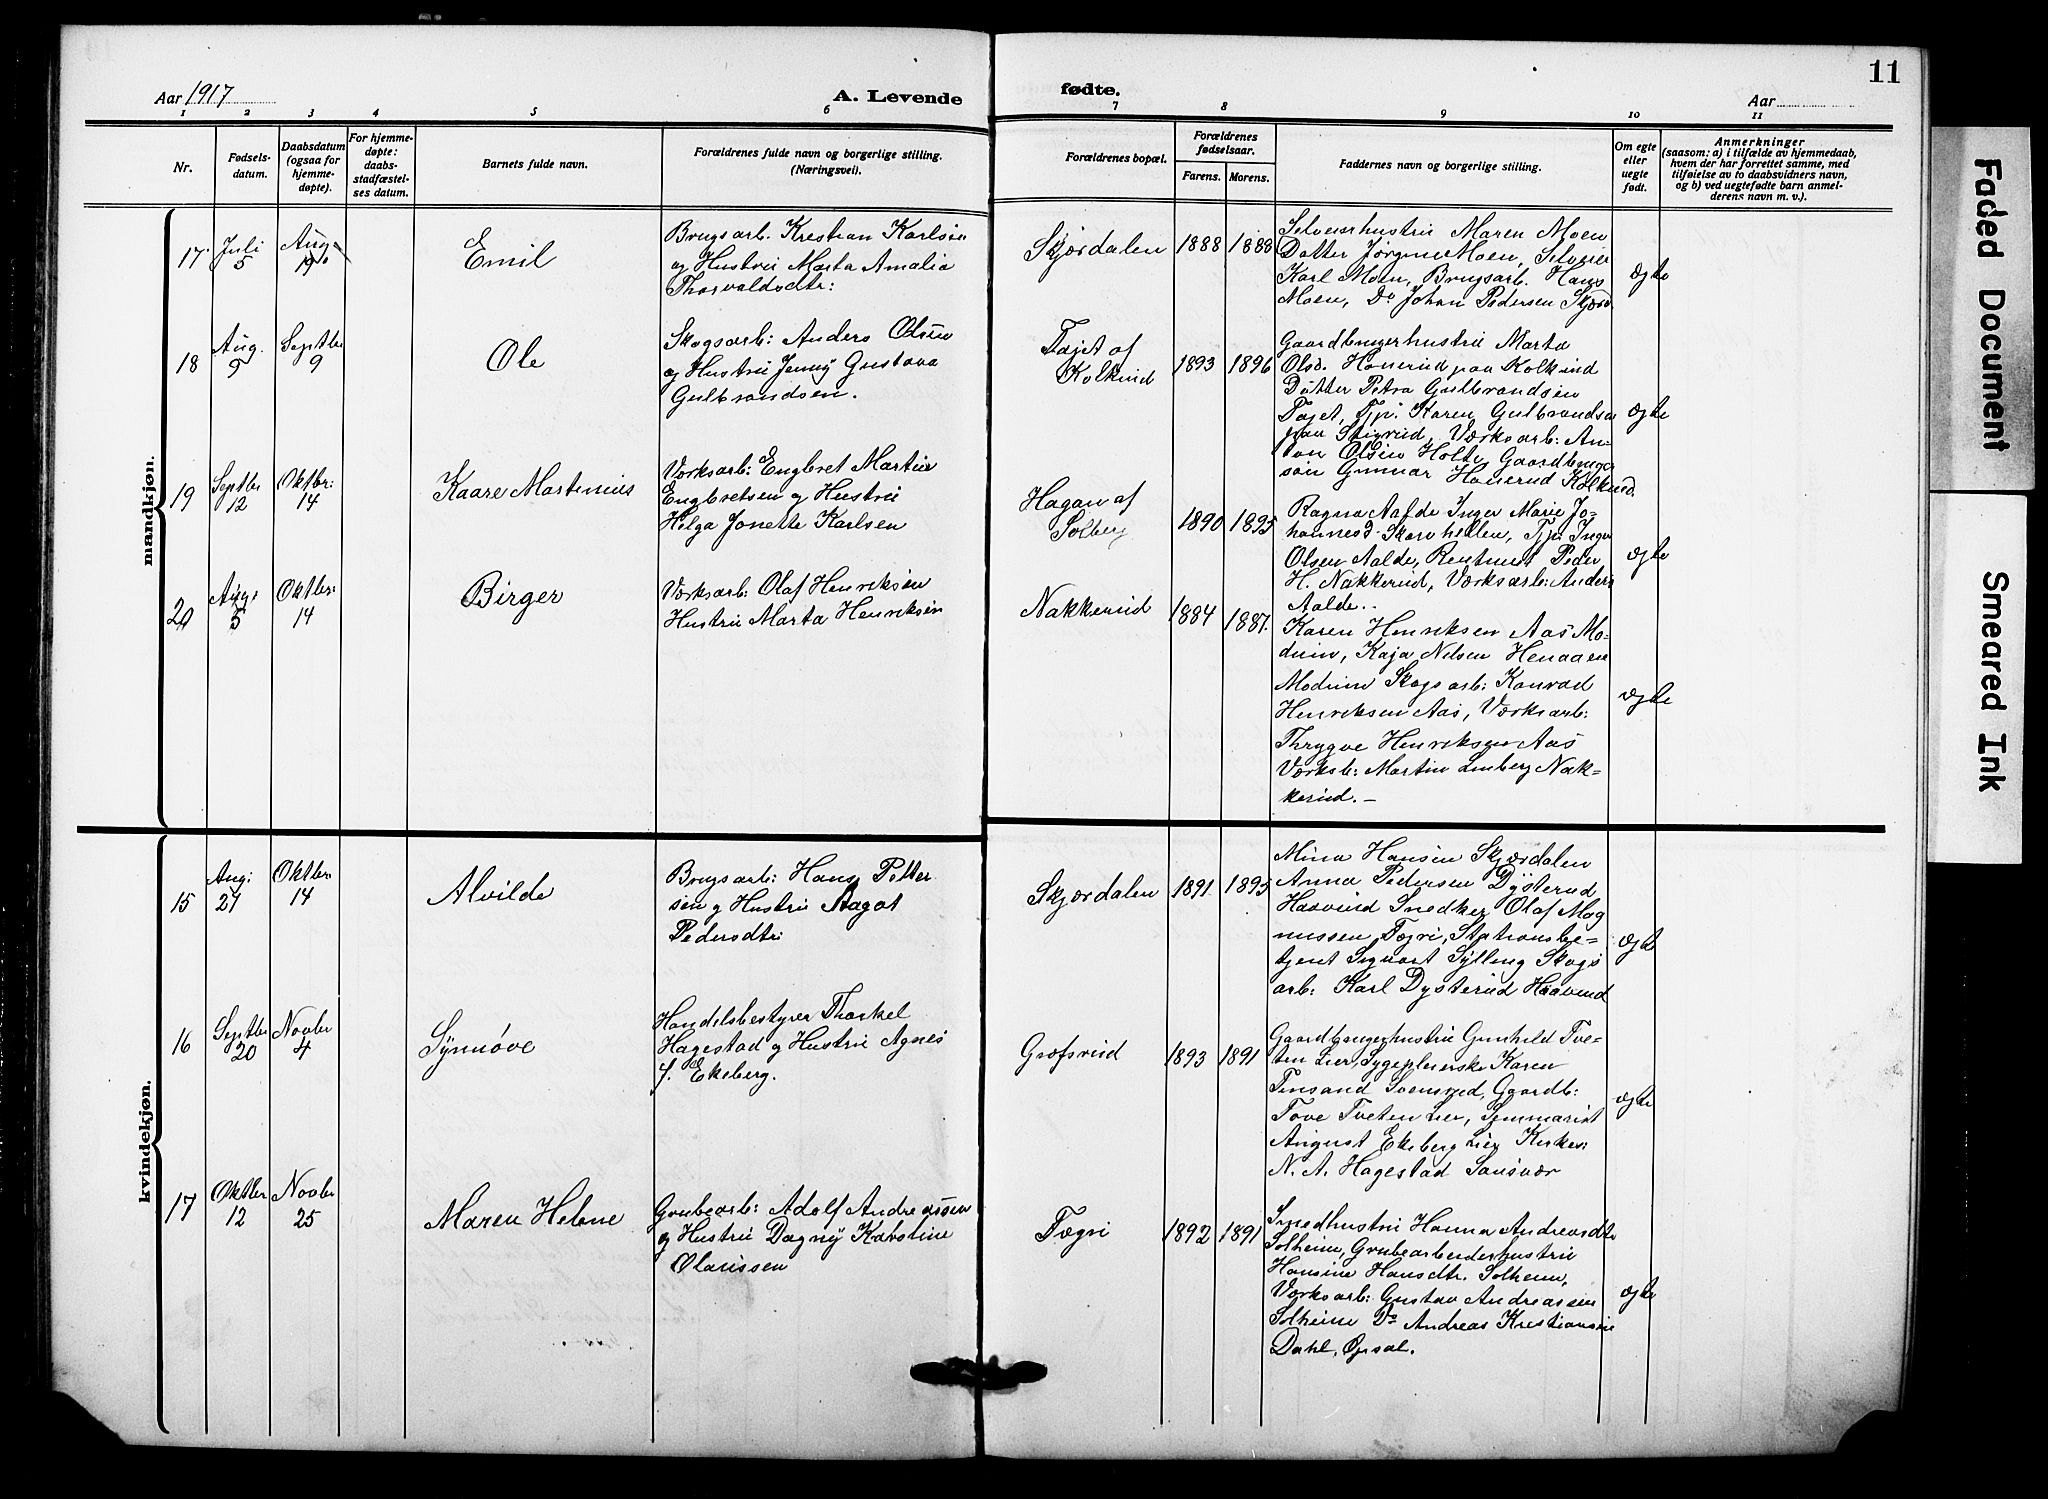 11
Aar 1917
A. Levende
fødte.
Aar
1 2 3 4 5 6 7 8 9 10 11
Nr.
Fødsels-
datum.
Daabsdatum
(ogsaa for
hjemme-
døpte).
For hjemme-
døpte:
daabs-
stadfæstel-
ses datum.
Barnets fulde navn.
Forældrenes fulde navn og borgerlige stilling.
(Næringsvei).
Forældrenes bopæl.
Forældrenes
fødselsaar.
Farens. Morens.
Faddernes navn og borgerlige stilling.
Om egte
eller
uegte
født.
Anmerkninger
(saasom: a) i tilfælde av hjemmedaab,
hvem der har forrettet samme, med
tilføielse av to daabsvidners navn,
og b) ved uegtefødte barn anmel-
derens navn m. v.).
mandkjøn.
17.
Juli
5
Aug.
19
Emil
Brugsarb. Krestian Karlsen
og Hustru Marta Amalia
Thorvaldsdtr:
Skjærdalen
1888
1888
Selveierhustru Maren Moen
Datter Jørgine Moen, Selveier
Karl Moen, Brugsarb. Hans
Moen, Do Johan Pedersen Skjærd.
ægte
18
Aug.
9
Septbr
9
Ole
Skogsarb: Anders Olsen
og Hustru Jenny Gustava
Gulbrandsen.
Tajet af
Kolkind
1893
1896
Gaardbrugerhustru Marta
Olsd. Honerud paa Kolkind
Datter Petra Gulbrandsen
Tajet, Tjp. Karen Gulbrandsen
paa Stigrud, Værksarb: An-
ton Olsen Holte, Gaardbruger
søn Gunnar Honerud Kolkind.
ægte
19
Septbr
12
Oktbr:
14
Kaare Martinius
Værksarb: Engbret Martin
Engbretsen og Hustru
Helga Jonette Karlsen
Hagan af
Solberg
1890
1895
Ragna Aalde Inger Marie Jo-
hannesd. Skarvhellen, Tjp. Inga
Olsen Aalde, Peder
H. Nakkerud, Værksarb: Anders
Aalde..
ægte
20
Aug.
5
Oktbr:
14
Birger
Værksarb: Olaf Henriksen
Hustru Marta Henriksen
Nakkerud
1884
1887.
Karen Henriksen Aas Mo-
dum, Kaja Nilsen Henaaen
Modum Skogsarb: Konrad
Henriksen Aas, Værksarb:
Thrygve Henriksen Aas
Værksb: Martin Limberg Nak-
kerud. —
ægte
kvindekjøn.
15
Aug:
27
Oktbr:
14
Alvilde
Brugsarb: Hans Petter
sen og Hustru Aagot
Pedersdtr:
Skjærdalen
1891
1895
Mina Hansen Skjærdalen
Anna Pedersen Dysterud
Haavind Snedker Olaf Mag
nussen Tægri, Stationsbe-
tjent Sigvart Sylling Skogs
arb: Karl Dysterud Haavind
ægte
16
Septbr
20
Novbr
4
Synnøve
Handelsbestyrer Thorkel
Hagestad og Hustru Agnes
f. Ekeberg.
Græfsrud
1893
1891
Gaardbrugerhustru Gunhild Tve-
ten Lier, Sygepleierske Karen
Finsand Svensrud, Gaardb:
Tove Tveten Lier, Seminarist
August Ekeberg Lier Kirkes:
N. A. Hagestad Sansvær
ægte
17
Oktber
12
Novbr
25
Maren Helene
Grubearb: Adolf Andreassen
og Hustru Dagny Karoline
Olarissen
Tægri
1892
1891
Smedhustru Hanna Andreasdtr
Solheim, Grubearbeiderhustru
Hansine Hansdtr. Solheim,
Værksarb: Gustav Andreassen
Solheim Do Andreas Kristiansen
Dahl, Opsal.
ægte
Faded Document
Smeared Ink